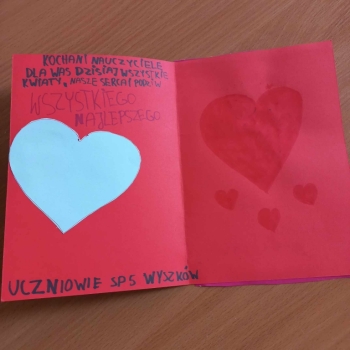 KOCHANI NAUCZYCIELE
DLA WAS DZISIAJ WSZYSTKIE
KWIATY, NASZE SERCA I PODZIW
WSZYSTKIEGO
NAJLEPSZEGO
UCZNIOWIE SP5 WYSZKÓW